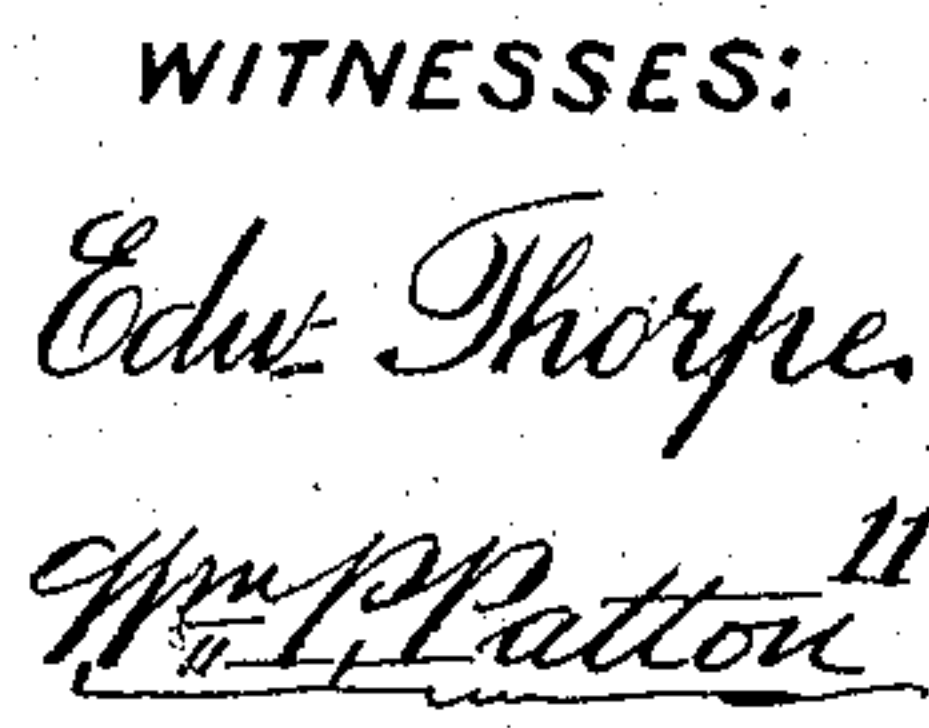 WITNESSES:
Edw. Thorpe.
Wm P. Patton